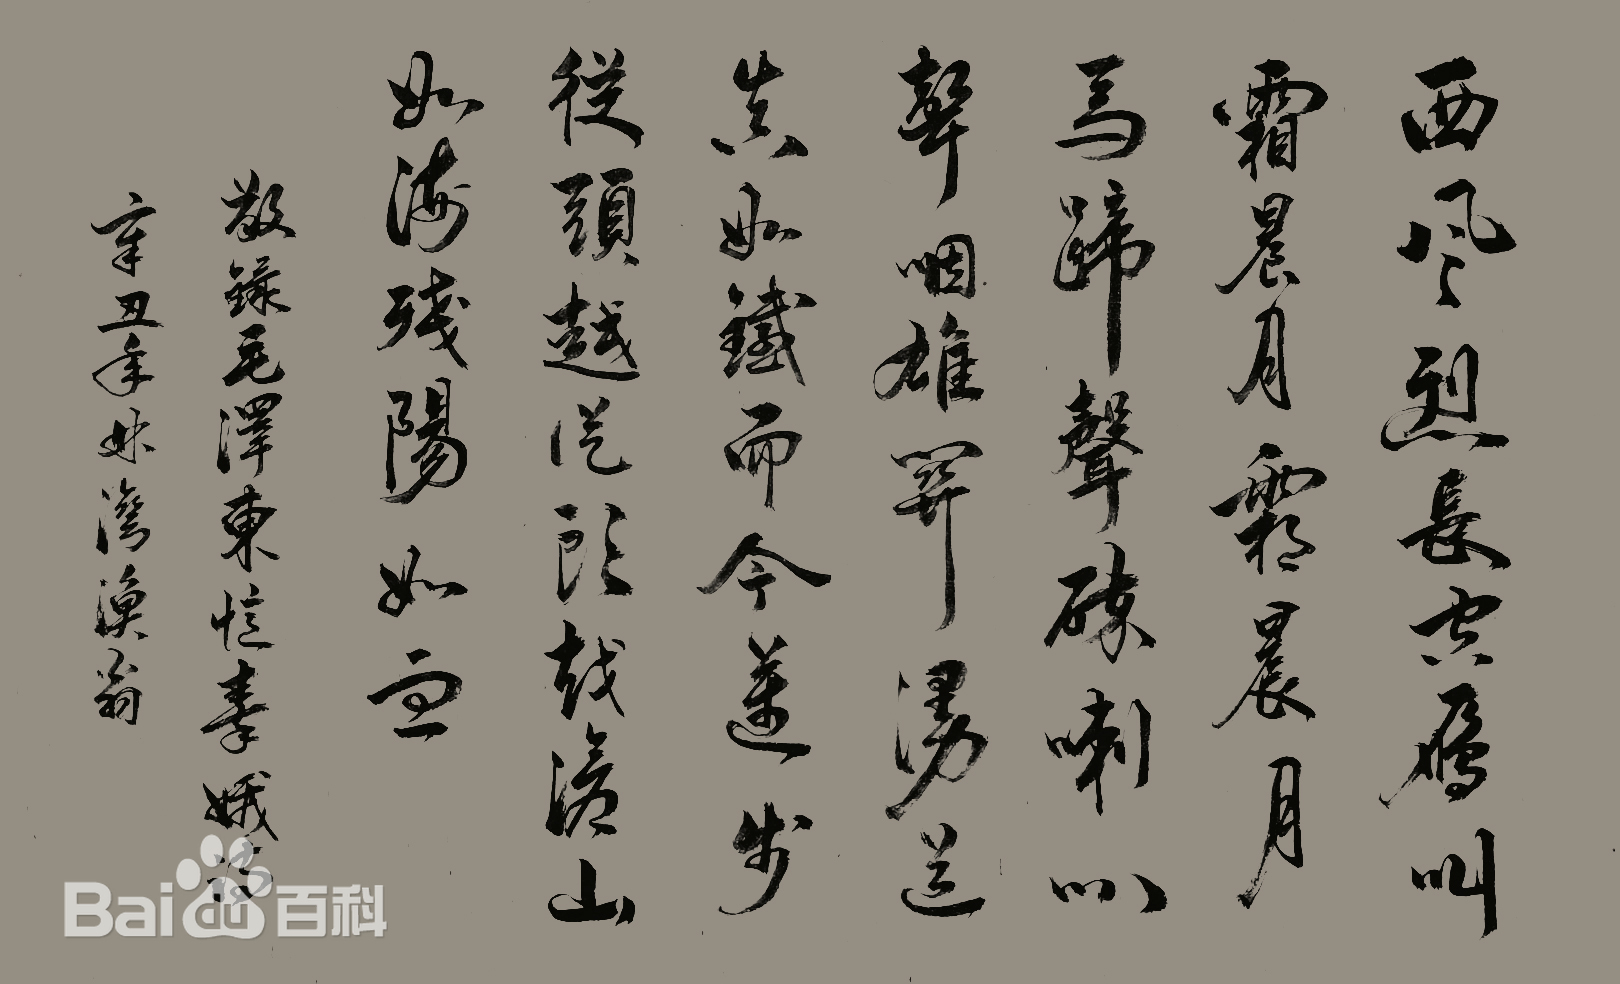 西風烈長空鴈叫
霜晨月霜晨月
馬蹄聲碎喇叭
聲咽雄關漫道
真如鐵而今邁步
從頭越從頭越滄山
如海残陽如血
敬錄毛澤東憶秦娥
辛丑年灣漁翁
Bai du 百科